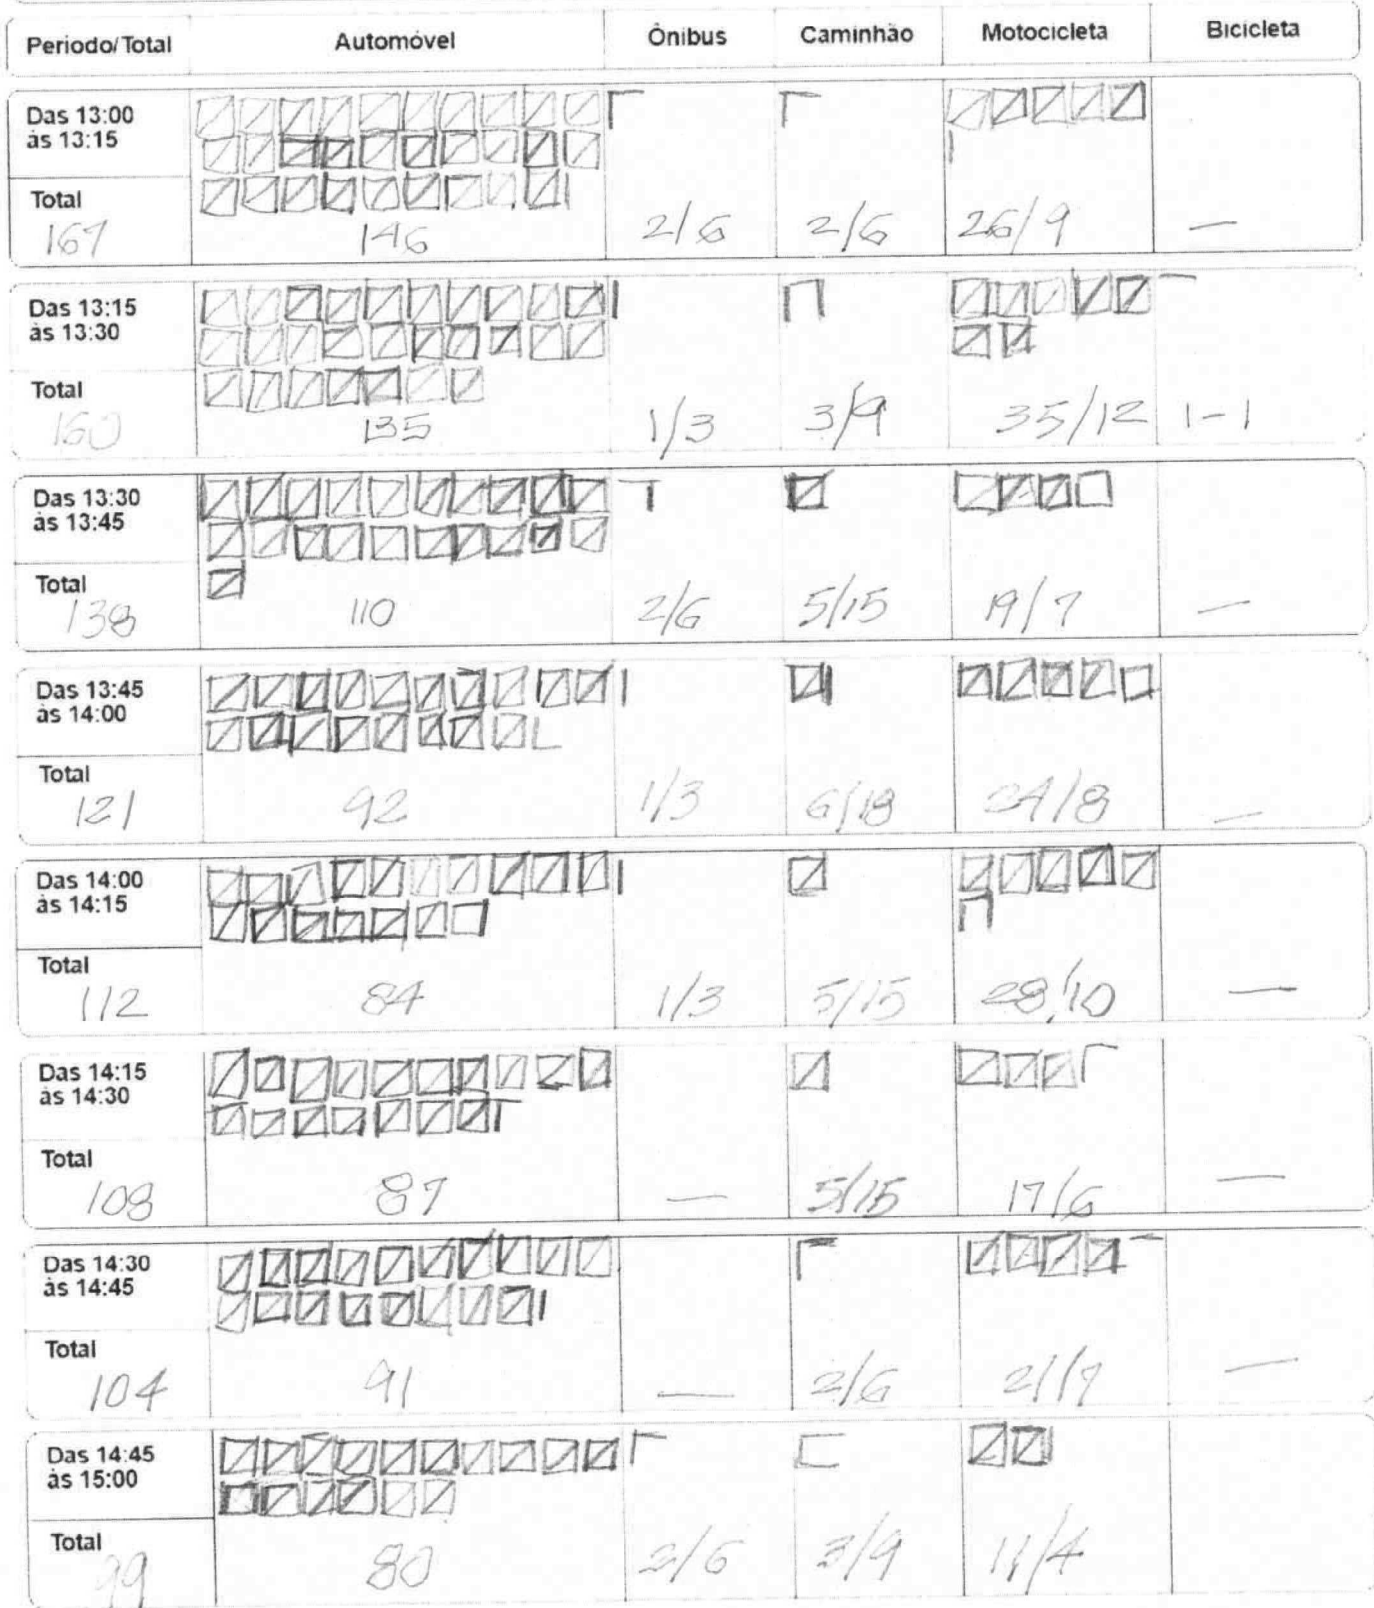 Periodo/Total Automóvel Ônibus Caminhão Motocicleta Bicicleta
Das 13:00
às 13:15
Total
167 146 2/6 2/6 26/9 —
Das 13:15
às 13:30
Total
160 135 1/3 3/9 35/12 1-1
Das 13:30
às 13:45
Total
138 110 2/6 5/15 19/7 —
Das 13:45
às 14:00
Total
121 92 1/3 6/18 24/8 —
Das 14:00
às 14:15
Total
112 84 1/3 5/15 28/10 —
Das 14:15
às 14:30
Total
108 87 — 5/15 17/6 —
Das 14:30
às 14:45
Total
104 91 — 2/6 21/7 —
Das 14:45
às 15:00
Total
99 80 2/6 3/9 11/4